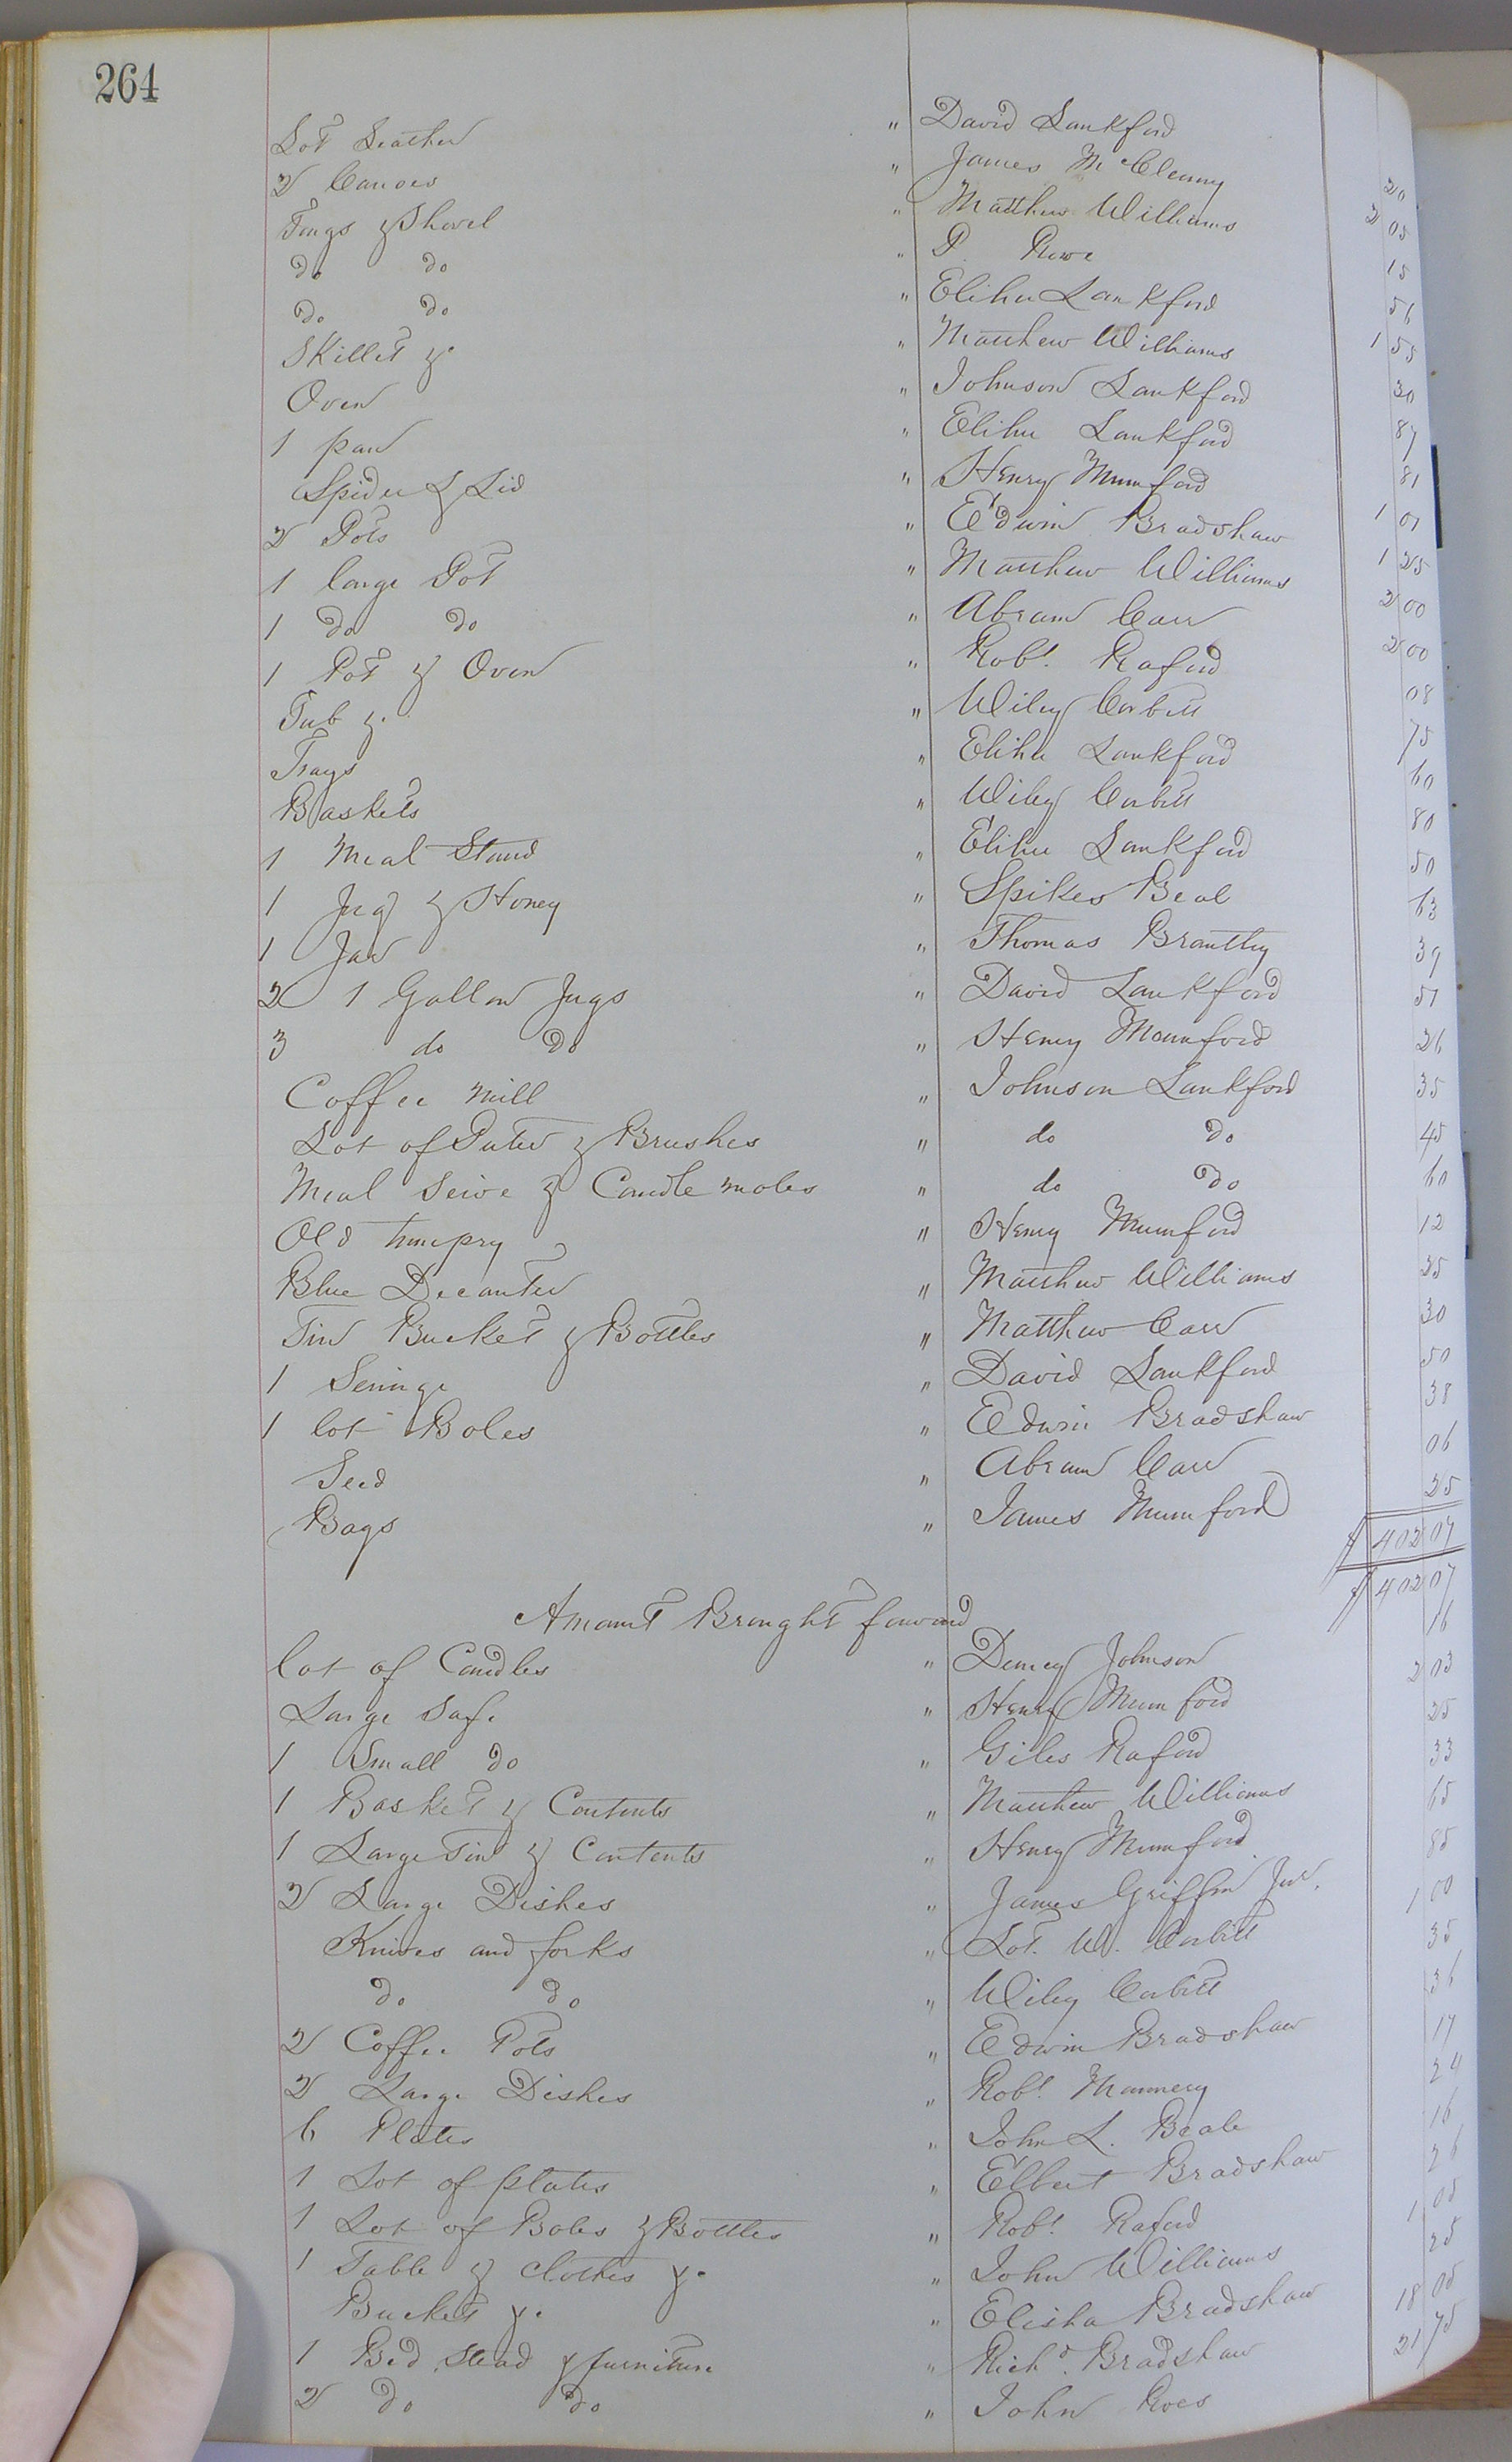 264
Lot Leather " David Lankford 20
2 Canoes " James McClenny 2 05
Tongs & Shovel " Matthew Williams 15
do do " P. Rowe 56
do do " Elihu Lankford 1 55
Skillet &. " Matthew Williams 30
Oven " Johnson Lankford 87
1 pan " Elihu Lankford 81
Spider & Lid " Henry Mumford 1 01
2 Pots " Edwin Bradshaw 1 25
1 large Pot " Matthew Williams 2 00
1 do do " Abram Carr 2 00
1 Pot & Oven " Robt. Raford 08
Tub &. " Wiley Corbitt 75
Trays " Elihu Lankford 60
Baskets " Wiley Corbitt 80
1 Meal Stand " Elihu Lankford 50
1 Jug & Honey " Spikes Beal 63
1 Jar " Thomas Brantley 39
2 1 Gallon Jugs " David Lankford 51
3 do do " Henry Mounford 26
Coffee Mill " Johnson Lankford 35
Lot of Puter & Brushes " do do 45
Meal Seive & Candle moles " do do 60
Old trumpry " Henry Mumford 12
Blue Decanter " Matthew Williams 25
Tin Bucket & Bottles " Matthew Carr 30
1 Seringe " David Lankford 50
1 lot Boles " Edwin Bradshaw 38
Seed " Abram Carr 06
Bags " James Mumford 25
$ 402 07
Amount Brought forward $ 402 07
lot of Candles " Dempsey Johnson 16
Large Safe " Henry Mumford 2 03
1 Small do " Giles Raford 25
1 Basket & Contents " Matthew Williams 33
1 Large Tin & Contents " Henry Mumford 65
2 Large Dishes " James Griffin Jur. 85
Knives and forks " Lot. W. Corbitt 1 00
do do " Wiley Corbitt 35
2 Coffee Pots " Edwin Bradshaw 36
2 Large Dishes " Robt. Mannery 17
6 Plates " John L. Beale 24
1 Lot of plates " Elbert Bradshaw 16
1 Lot of Boles & Bottles " Robt. Raford 26
1 Table & Clothes &. " John Williams 1 05
Buckets &. " Elisha Bradshaw 25
1 Bed Stead & furniture " Richd. Bradshaw 18 05
2 do do " John Roes 21 75